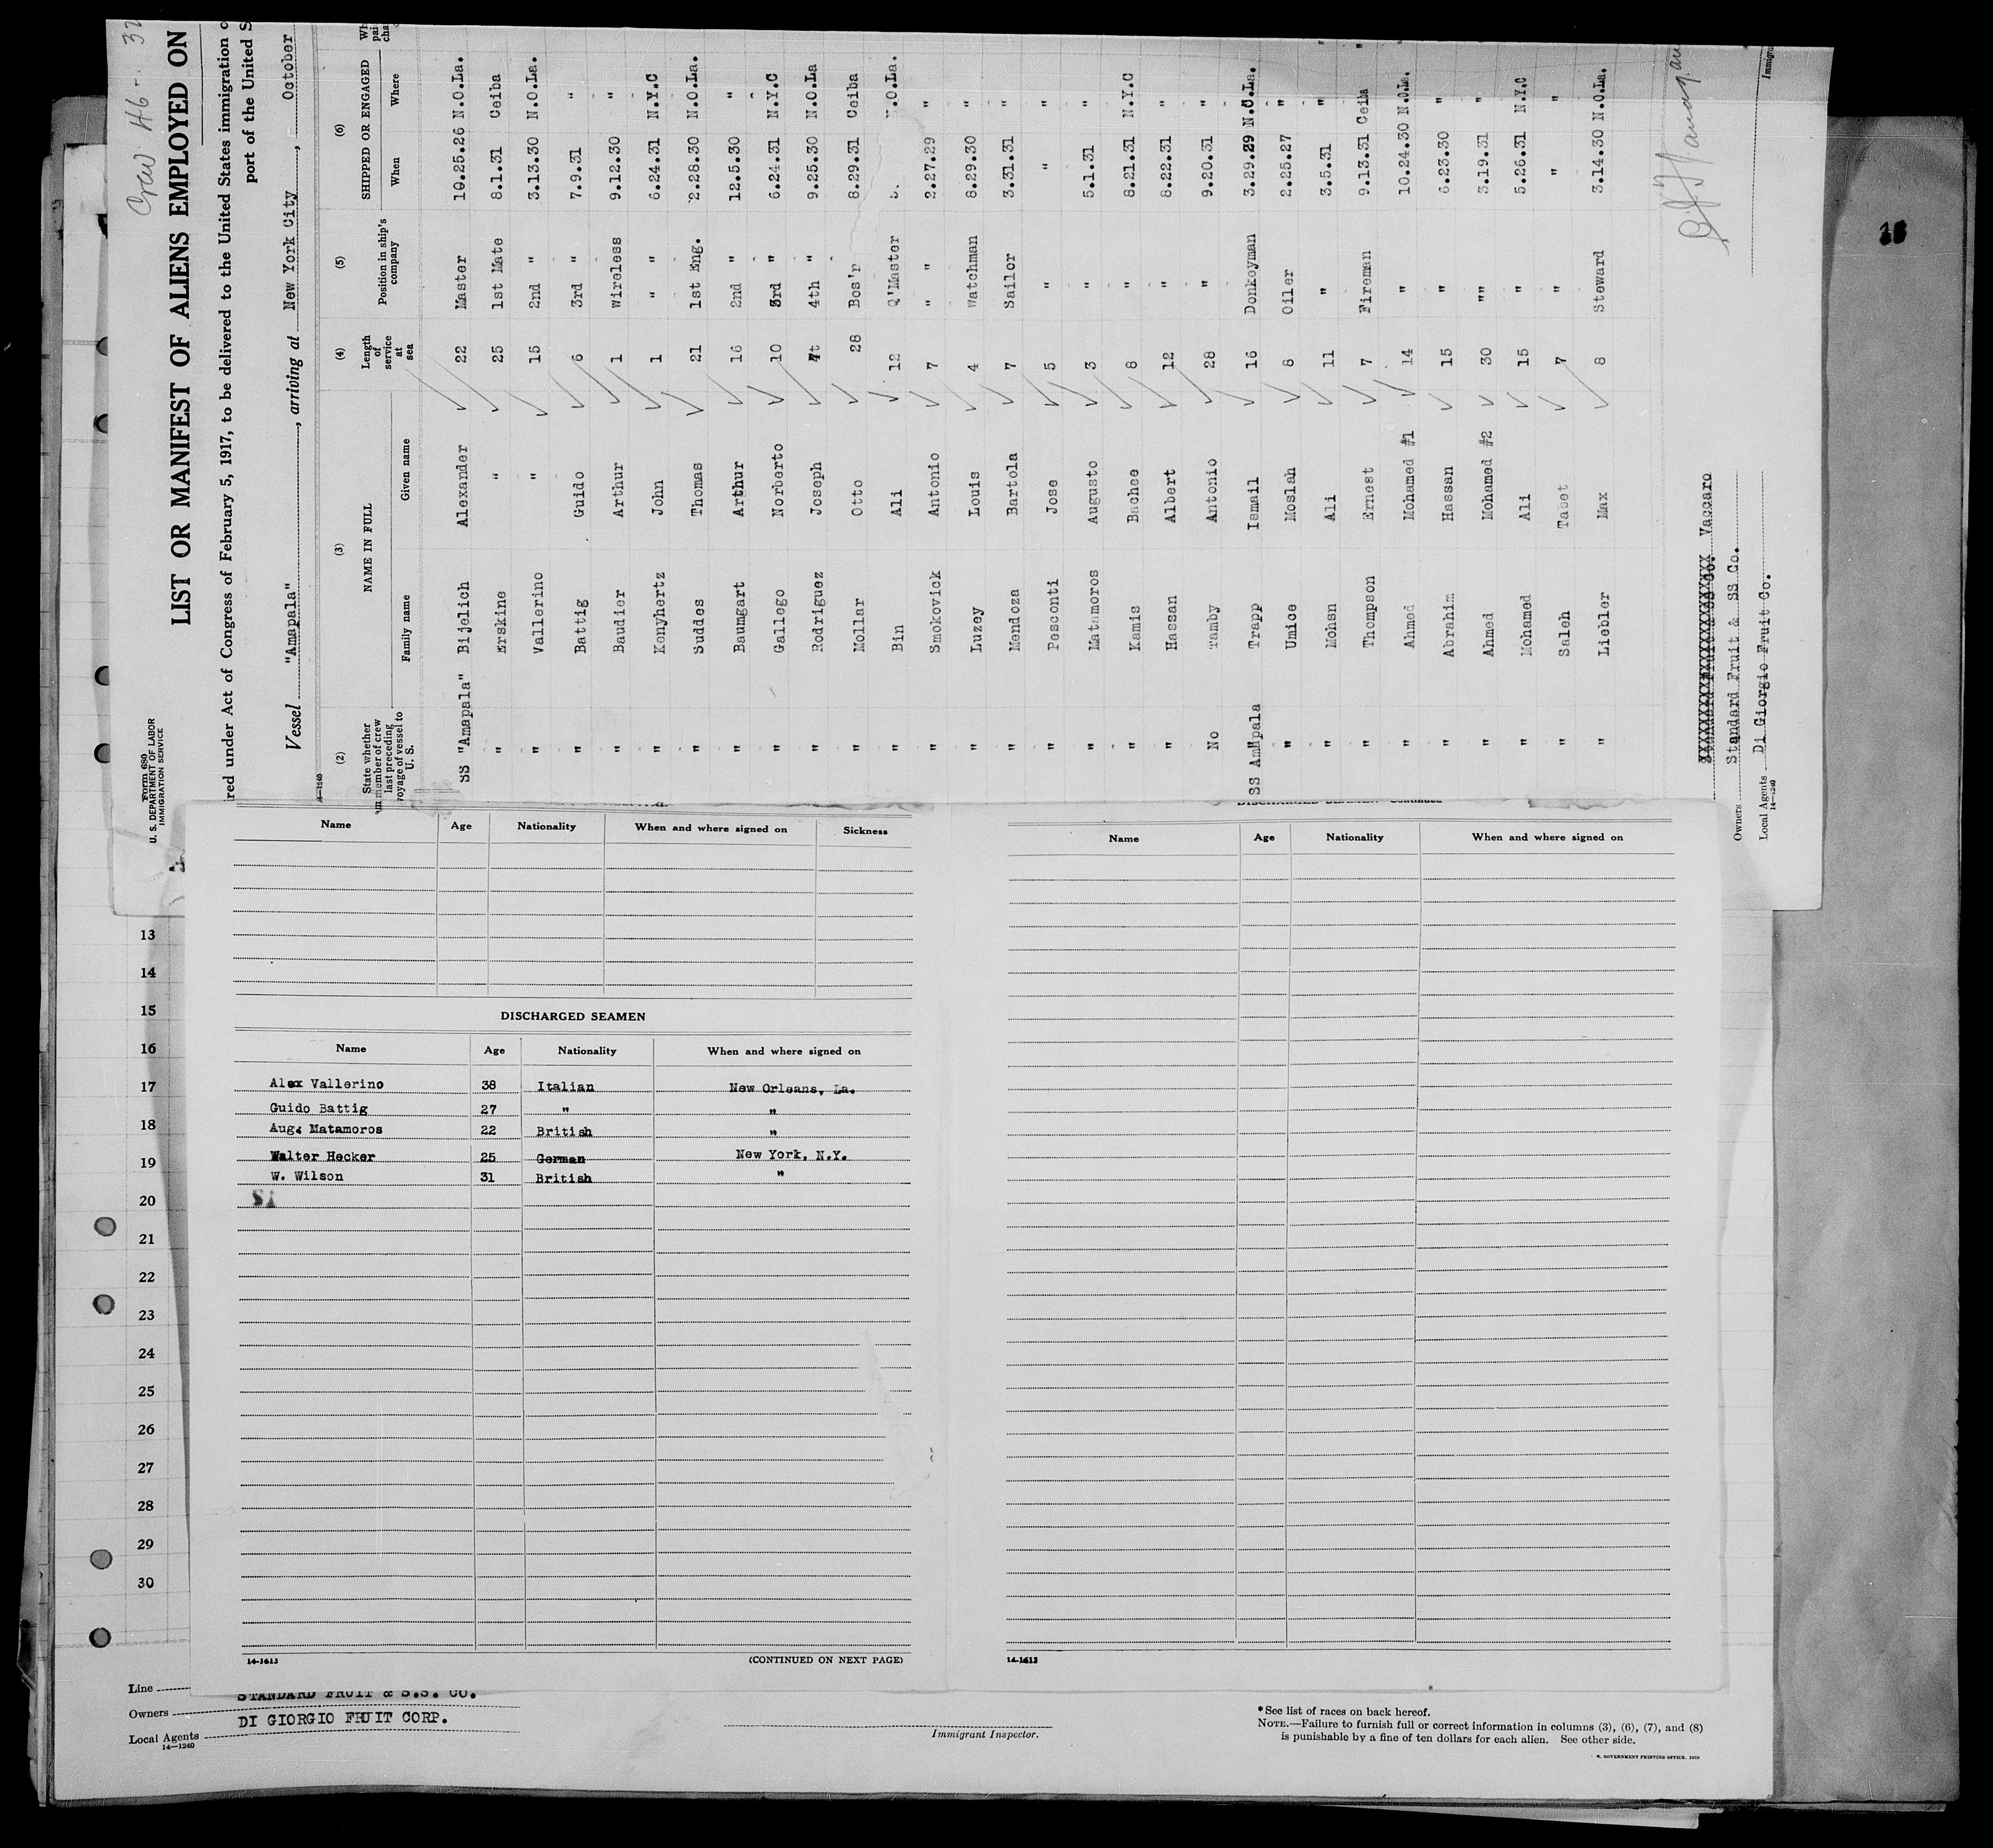 Crew 46-
Form 680
U. S. DEPARTMENT OF LABOR
IMMIGRATION SERVICE
LIST OR MANIFEST OF ALIENS EMPLOYED ON
red under Act of Congress of February 5, 1917, to be delivered to the United States immigration
port of the United S
Vessel "Amapala", arriving at New York City, October
14-1240
(2) (3) (4) (5) (6)
State whether member of crew last preceding voyage of vessel to U. S. NAME IN FULL Family name Given name Length of service at sea Position in ship's company SHIPPED OR ENGAGED When Where
SS "Amapala" Bijelich Alexander 22 Master 10.25.26 N.O.La.
" Erskine " 25 1st Mate 8.1.31 Ceiba
" Vallerino " 15 2nd " 3.13.30 N.O.La.
" Battig Guido 6 3rd " 7.9.31 "
" Baudier Arthur 1 Wireless 9.12.30 "
" Kenyhertz John 1 " " 6.24.31 N.Y.C
" Suddes Thomas 21 1st Eng. 2.28.30 N.O.La.
" Baumgart Arthur 16 2nd " 12.5.30 "
" Gallego Norberto 10 3rd " 6.24.31 N.Y.C
" Rodriguez Joseph 4th " 9.25.30 N.O.La
" Mollar Otto 28 Bos'n 8.29.31 Ceiba
" Bin Ali 12 Q'Master .O.La.
" Smokovick Antonio 7 " " 2.27.29 "
" Luzey Louis 4 Watchman 8.29.30 "
" Mendoza Bartola 7 Sailor 3.31.31 "
" Pesconti Jose 5 " " "
" Matamoros Augusto 3 " 5.1.31 "
" Kamis Bachee 8 " 8.21.31 N.Y.C
" Hassan Albert 12 " 8.22.31 "
No Tamby Antonio 28 " 9.20.31 "
SS Amapala Trapp Ismail 16 Donkeyman 3.29.29 N.O.La.
" Umice Moslah 8 Oiler 2.25.27 "
" Mohsn Ali 11 " 3.5.31 "
" Thompson Ernest 7 Fireman 9.13.31 Ceiba
" Ahmed Mohamed #1 14 " 10.24.30 N.O.La.
" Abrahim Hassan 15 " 6.23.30 "
" Ahmed Mohamed #2 30 "" 3.19.31 "
" Mohamed Ali 15 " 5.26.31 N.Y.C
" Saleh Tabet 7 " " "
" Liebler Max 8 Steward 3.14.30 N.O.La.
Vaccaro
Owners Standard Fruit & SS Co.
Local Agents Di Giorgio Fruit Co.
14-1240
Name Age Nationality When and where signed on Sickness
DISCHARGED SEAMEN
Name Age Nationality When and where signed on
Alex Vallerino 38 Italian New Orleans, La.
Guido Battig 27 " "
Aug. Matamoros 22 British "
Walter Hecker 25 German New York, N.Y.
W. Wilson 31 British "
14-1613
(CONTINUED ON NEXT PAGE)
DISCHARGED SEAMEN—Continued
Name Age Nationality When and where signed on
14-1613
13
14
15
16
17
18
19
20
21
22
23
24
25
26
27
28
29
30
Line
Owners STANDARD FRUIT & S.S. CO.
Local Agents DI GIORGIO FRUIT CORP.
14-1240
Immigrant Inspector.
*See list of races on back hereof.
NOTE.—Failure to furnish full or correct information in columns (3), (6), (7), and (8)
is punishable by a fine of ten dollars for each alien. See other side.
GOVERNMENT PRINTING OFFICE